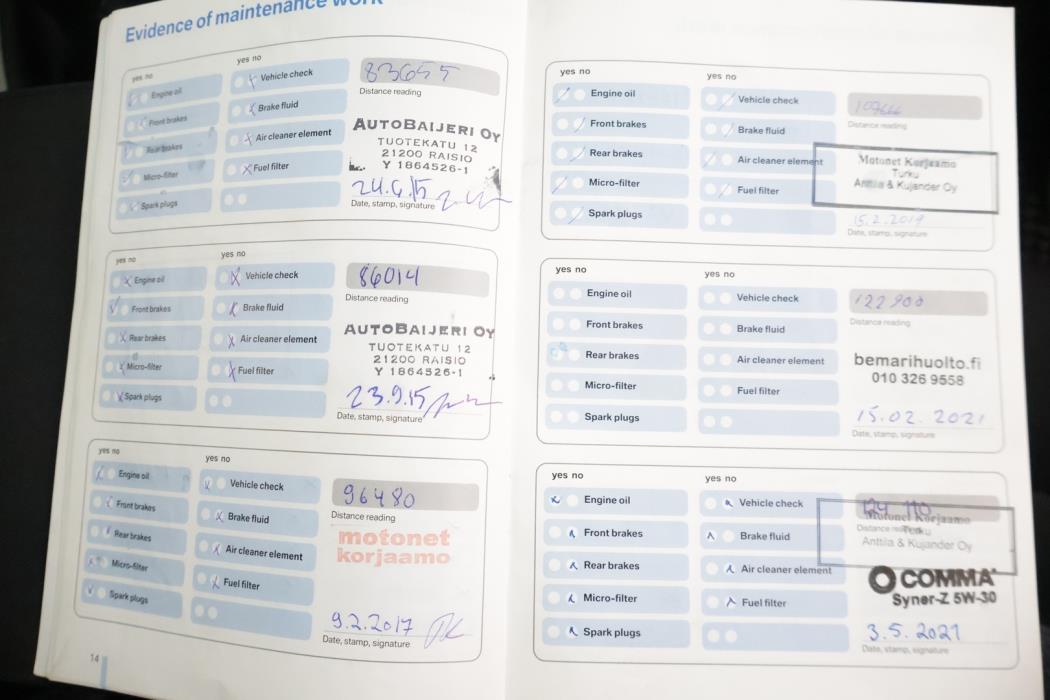 Evidence of maintenance work
yes no
yes no
Engine oil
Vehicle check
83655
Distance reading
Front brakes
Brake fluid
Rear brakes
Air cleaner element
AUTOBAIJERI OY
TUOTEKATU 12
21200 RAISIO
Y 1864526-1
Micro-filter
Fuel filter
24.6.15
Spark plugs
Date, stamp, signature
yes no
yes no
Engine oil
Vehicle check
86014
Distance reading
Front brakes
Brake fluid
Rear brakes
Air cleaner element
AUTOBAIJERI OY
TUOTEKATU 12
21200 RAISIO
Y 1864526-1
Micro-filter
Fuel filter
23.9.15
Spark plugs
Date, stamp, signature
yes no
yes no
Engine oil
Vehicle check
96480
Distance reading
Front brakes
Brake fluid
motonet
korjaamo
Rear brakes
Air cleaner element
Micro-filter
Fuel filter
Spark plugs
9.2.2017
Date, stamp, signature
14
yes no
yes no
Engine oil
Vehicle check
Distance reading
Front brakes
Brake fluid
Rear brakes
Air cleaner element
Motonet Korjaamo
Turku
Anttila & Kujander Oy
Micro-filter
Fuel filter
Spark plugs
15.2.2019
Date, stamp, signature
yes no
yes no
Engine oil
Vehicle check
122900
Distance reading
Front brakes
Brake fluid
Rear brakes
Air cleaner element
bemarihuolto.fi
010 326 9558
Micro-filter
Fuel filter
Spark plugs
15.02.2021
Date, stamp, signature
yes no
yes no
Engine oil
Vehicle check
124 110
Motonet Korjaamo
Distance reading
Turku
Anttila & Kujander Oy
Front brakes
Brake fluid
Rear brakes
Air cleaner element
COMMA
Syner-Z 5W-30
Micro-filter
Fuel filter
Spark plugs
3.5.2021
Date, stamp, signature